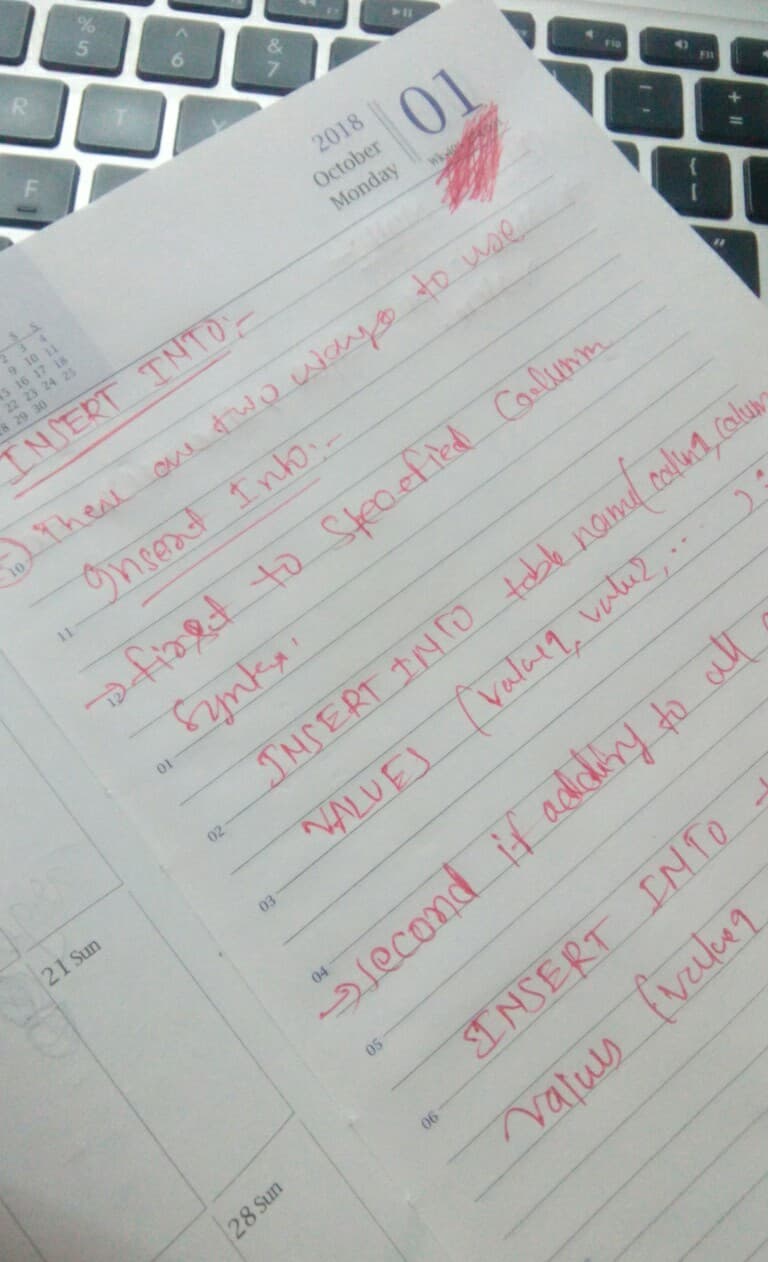 % 5
^ 6
& 7
F7
F10
F11
R
T
Y
F
+ =
{ [
2018
October
Monday
01
S S
2 3 4
9 10 11
15 16 17 18
22 23 24 25
28 29 30
INSERT INTO:-
There are two ways to use
Insert Into:-
→ first to Specified Column
Syntax:
INSERT INTO table name(column1, colum
VALUES (value1, value2, ... );
→ second if adding to all
INSERT INTO
values (value1
10
11
12
01
02
03
04
05
06
21 Sun
28 Sun